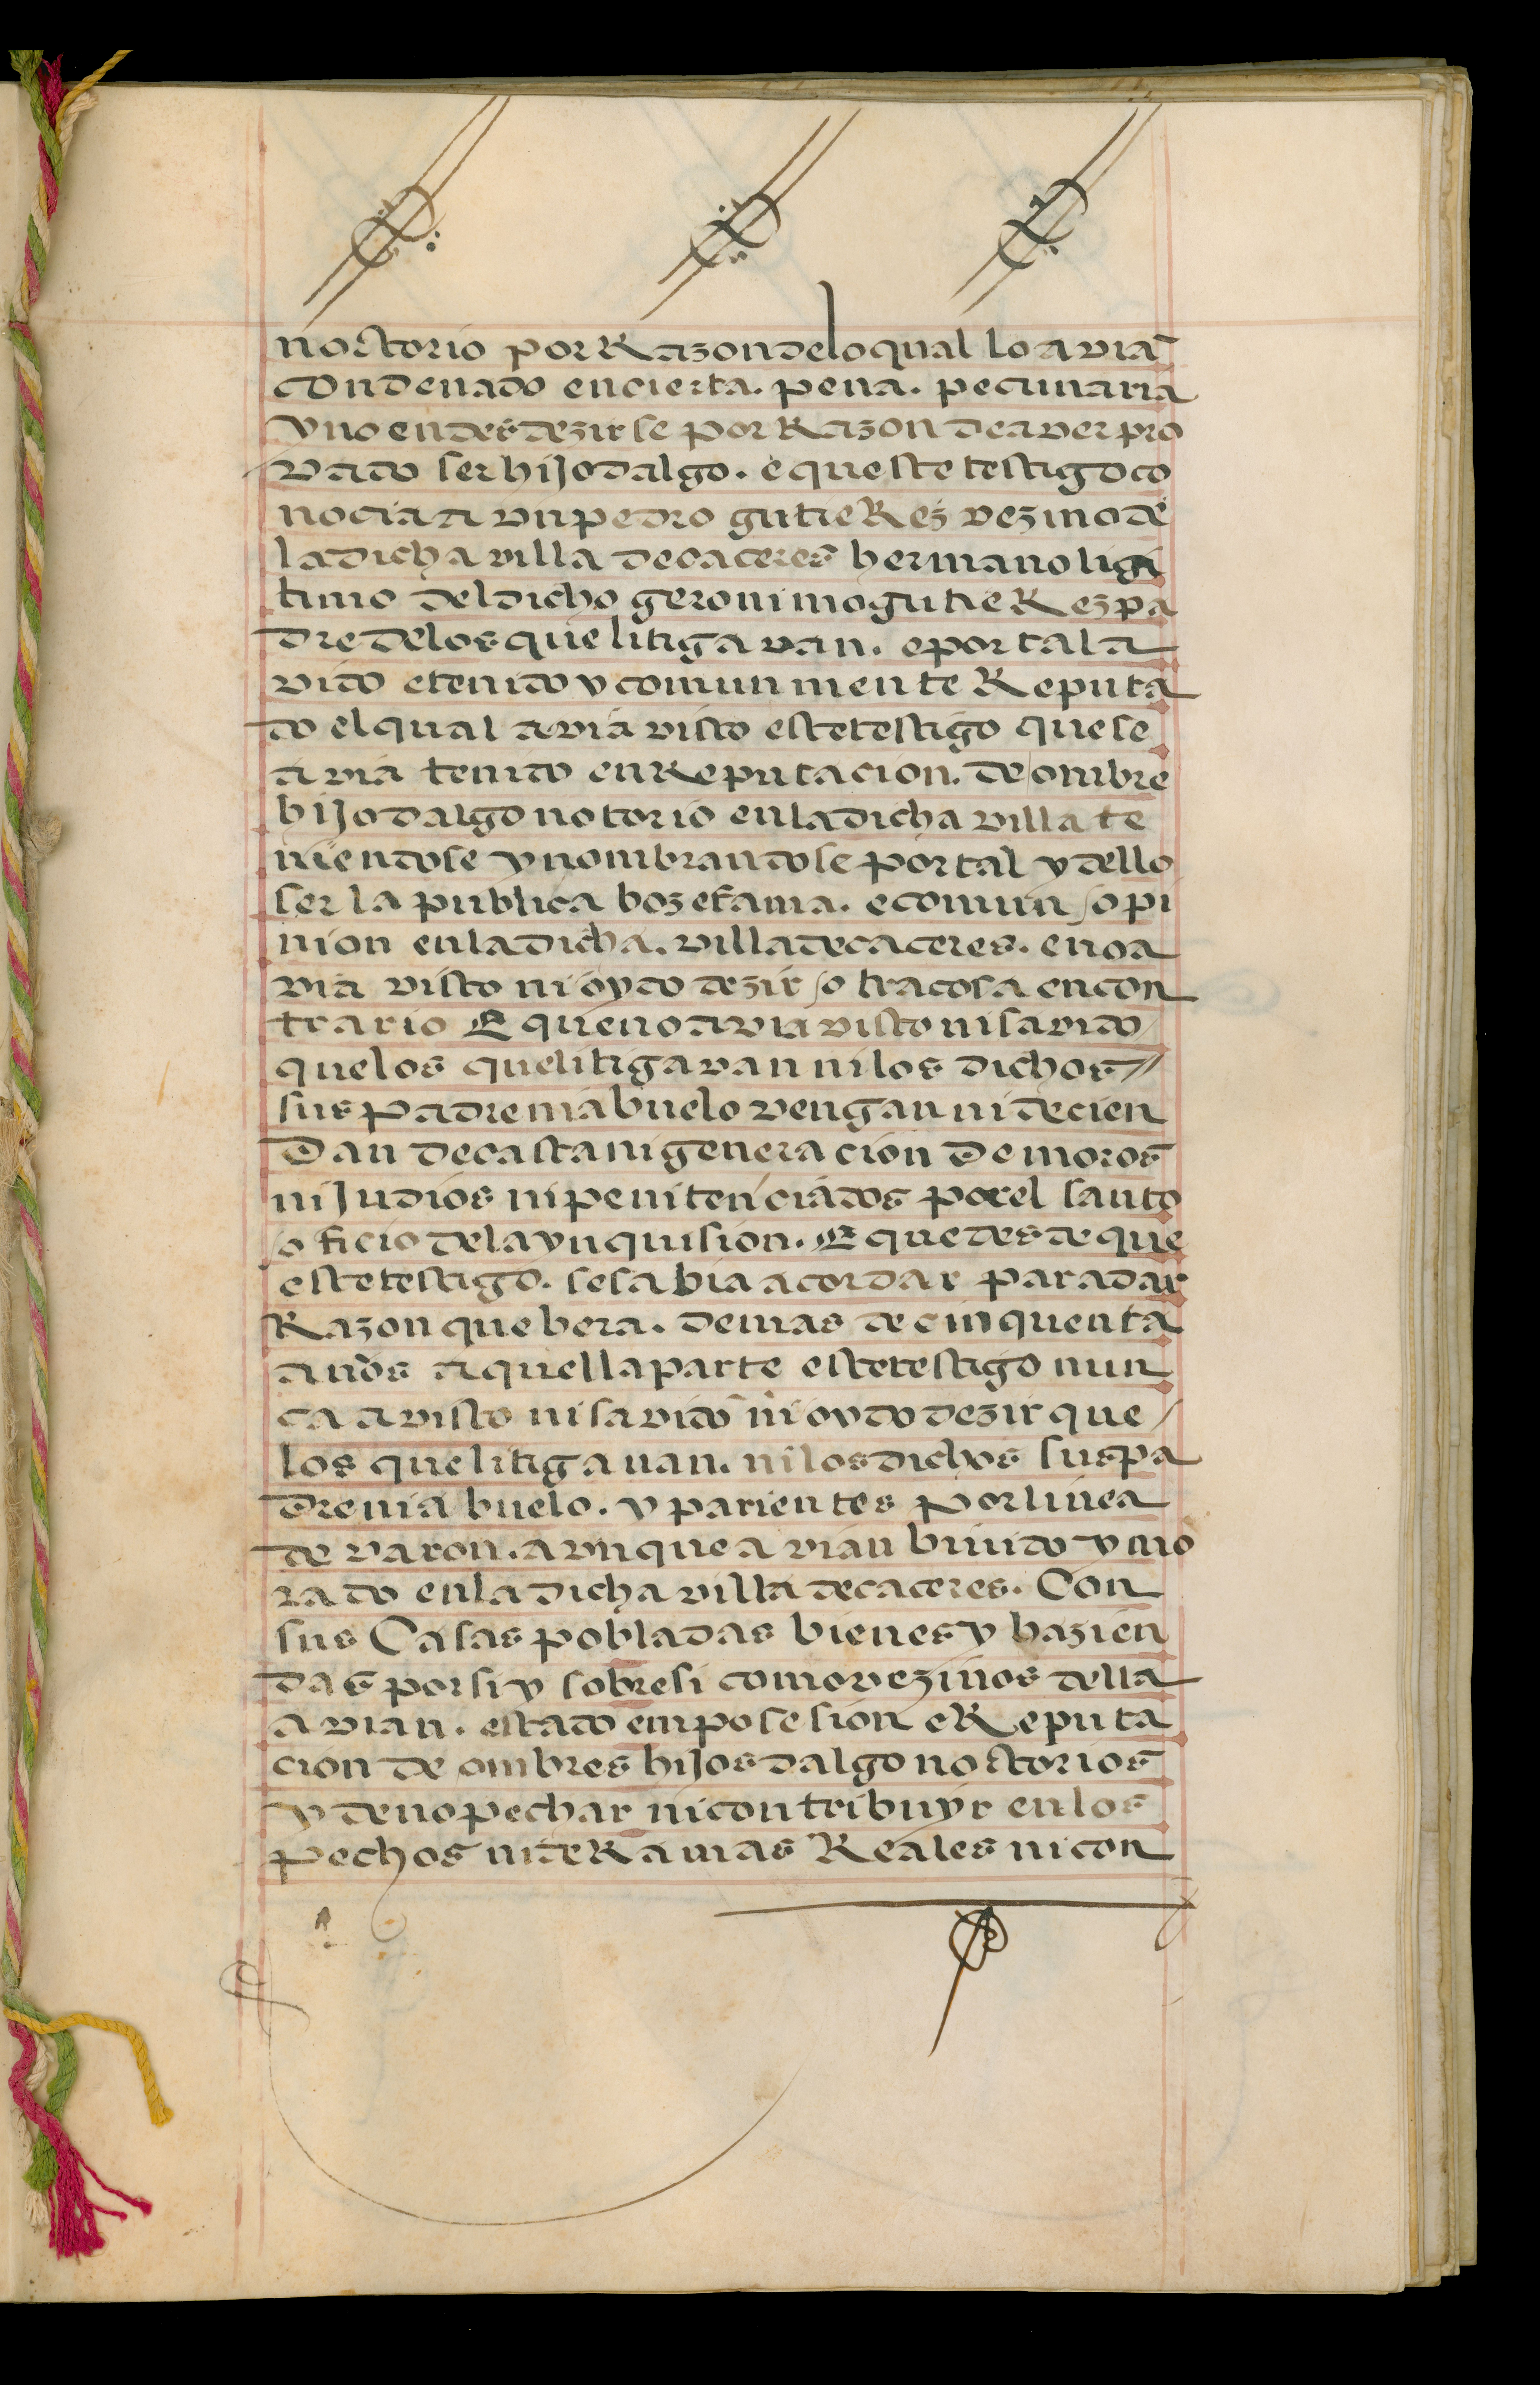 noctorio por Razon delo qual lo avia
condenado en cierta. pena. pecuniaria
y no en desdezirse por Razon de aver pro
vado ser hijodalgo. e que este testigo co
nocia a un pedro gutieRez vezino de
la dicha villa de caceres hermano ligi
timo del dicho geronimo gutieRez pa
dre delos que litigavan. e por tal a
vido e tenido y comunmente Reputa
do el qual avia visto este testigo que se
avia tenido en Reputacion. de ombre
hijodalgo notorio en la dicha villa te
niendose y nombrandose por tal y dello
ser la publica boz e fama. e comun opi
nion en la dicha. villa de caceres. e no a
via visto ni oydo dezir otra cosa en con
trario E que no avia visto ni savido
que los que litigavan ni los dichos
sus padre ni abuelo vengan ni decien
dan de casta ni generacion de moros
ni Judios ni penitenciados por el santo
oficio dela ynquision. E que desde que
este testigo. se sabia acordar para dar
Razon que bera. de mas de cinquenta
anos aquella parte este testigo nun
ca a visto ni savido ni oydo dezir que
los que litigauan. ni los dichos sus pa
dre ni abuelo. y parientes por linea
de varon. avnque avian biuido y mo
rado en la dicha villa de caceres. Con
sus Casas pobladas bienes y hazien
das por si y sobre si como vezinos della
avian. estado en posesion e Reputa
cion de ombres hijosdalgo noctorios
y de no pechar ni contribuyr en los
pechos ni deRamas Reales ni con